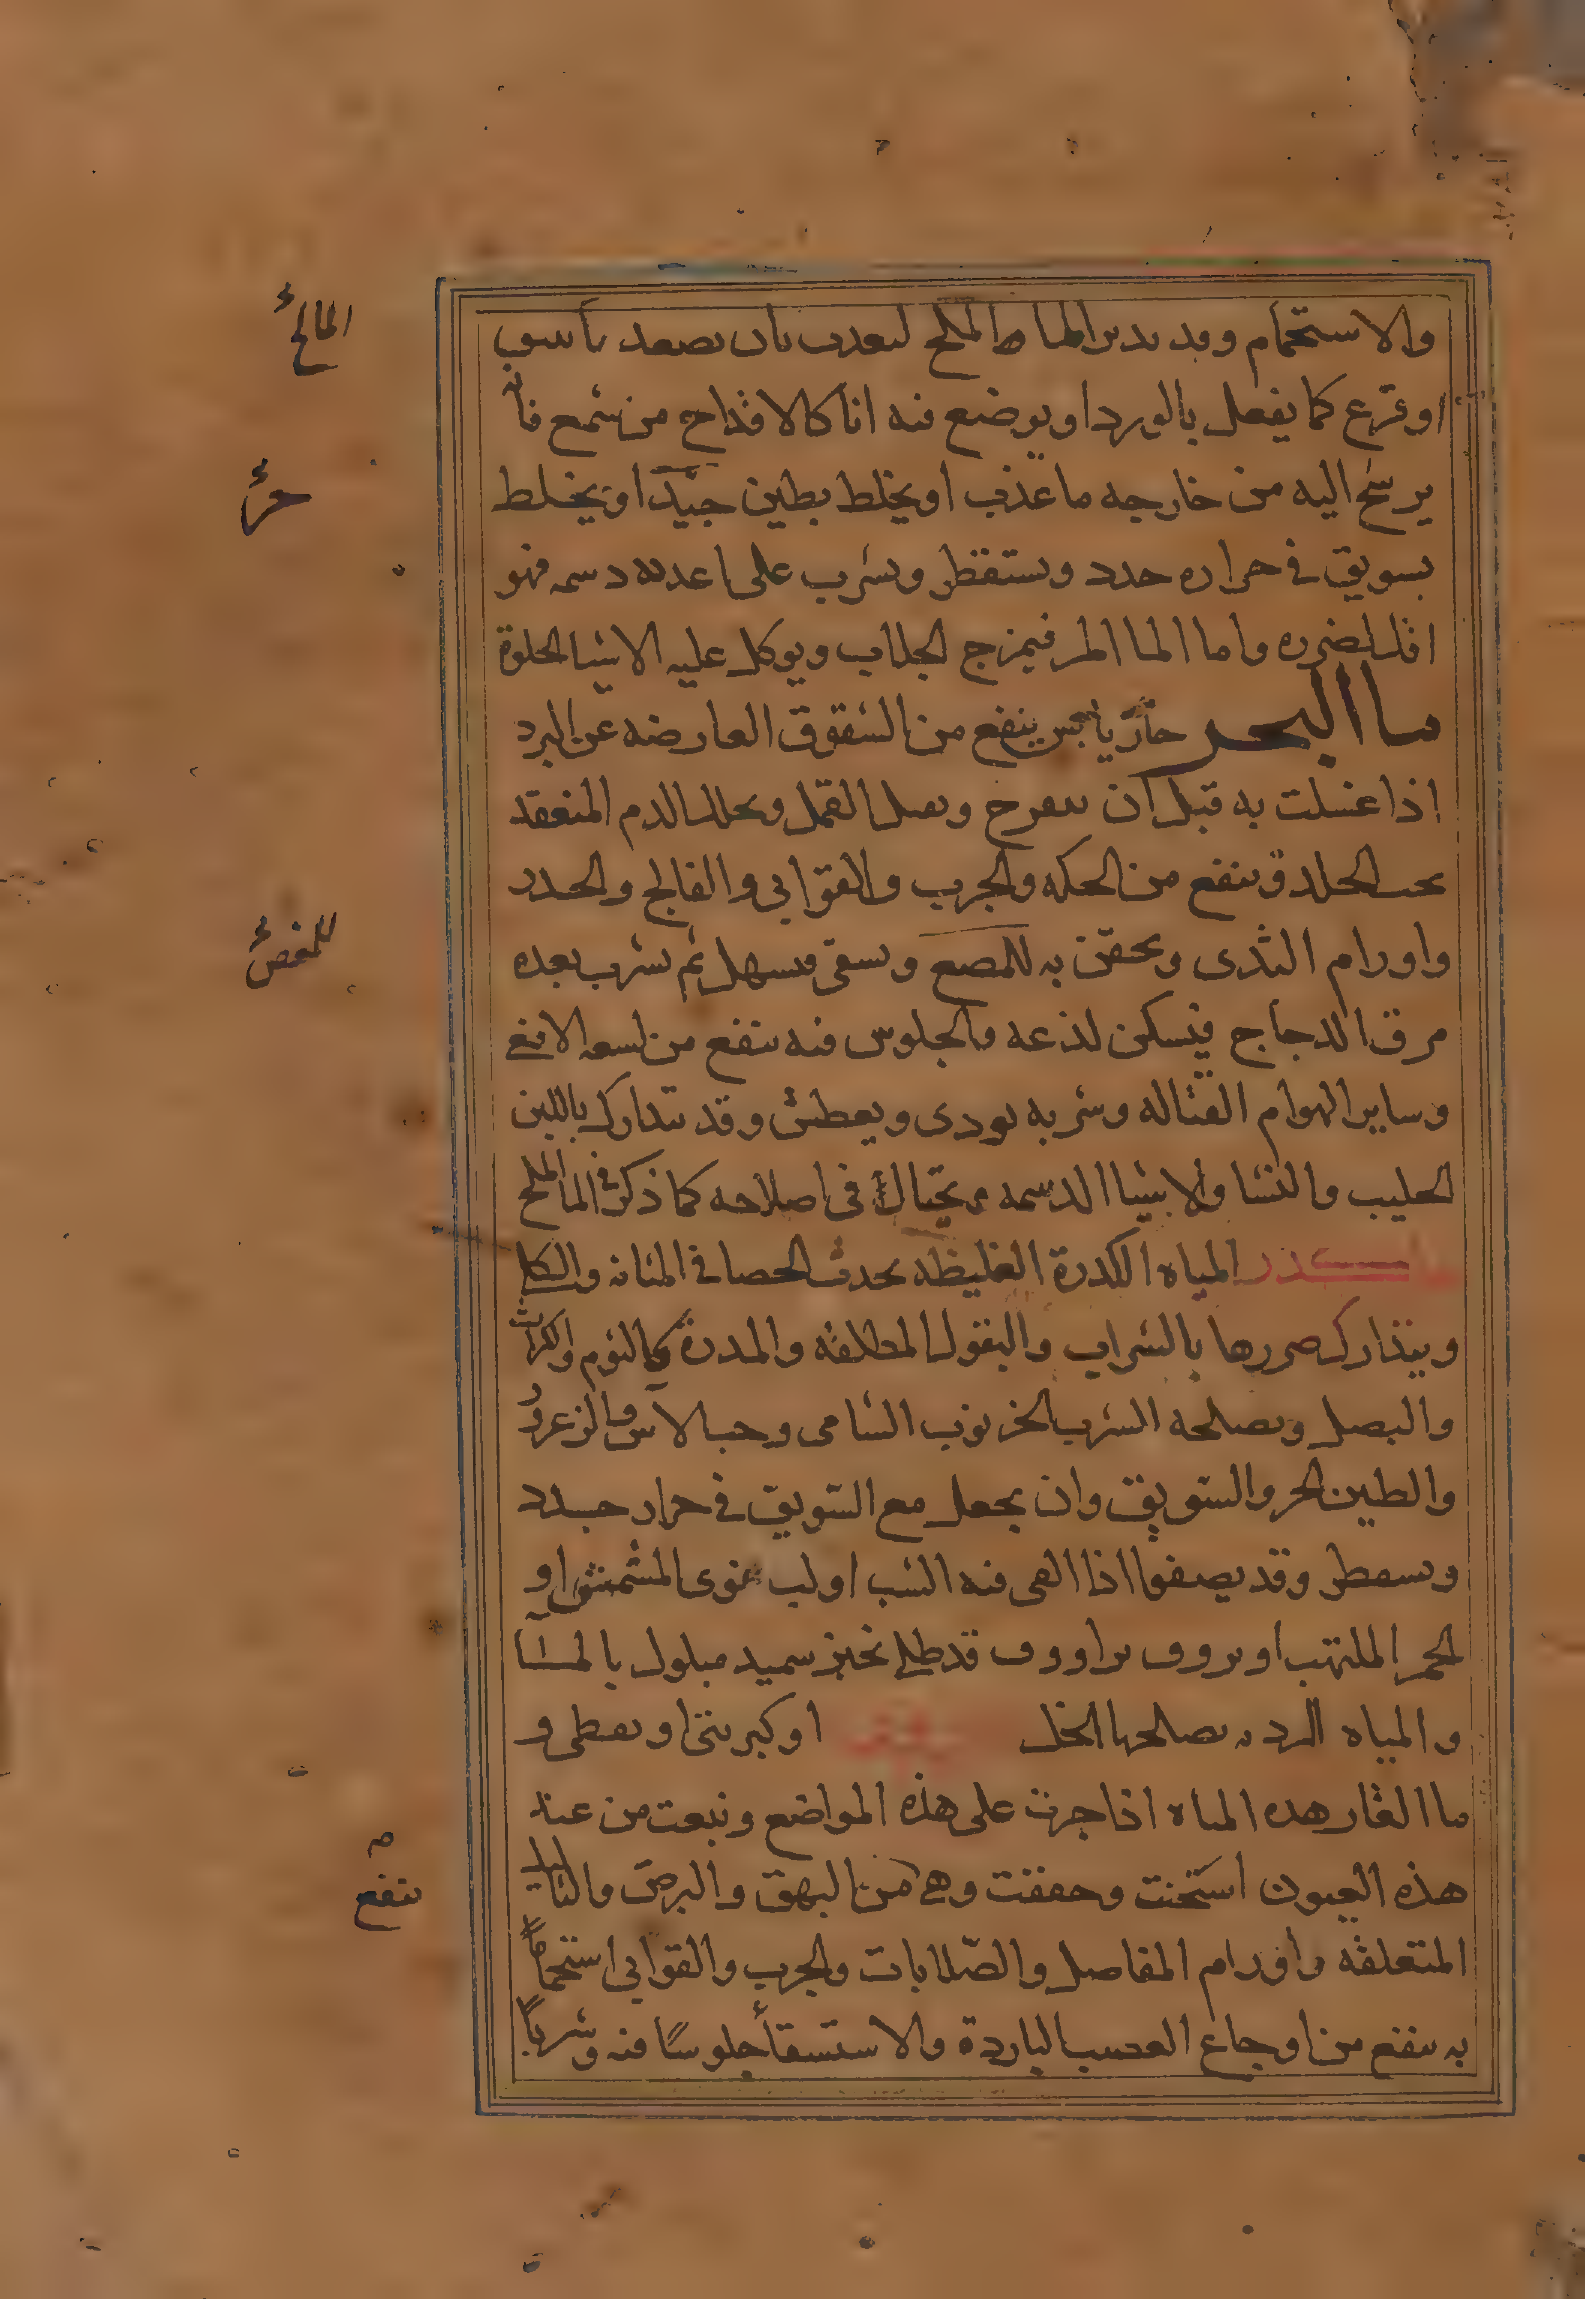 والاستحمام وقد يدبر الماء المالح ليعذب بان يصعد بانبيق
او قرع كما يفعل بالورد او يوضع فيه انا كالاقداح من شمع فانه
يرشح اليه من خارجه ما عذب او يخلط بطين جيد او يخلط
بسويق في جرار جدد ويستقطر ويشرب على اغذية دسمه فهو
اقل لمضره واما الما المر فيمزج الجلاب ويوكل عليه الاشيا الحلوة
ما البحر حار يابس ينفع من الشقوق العارضه عن البرد
اذا غسلت به قبل ان يتقرح ويقتل القمل ويحلل الدم المنعقد
تحت الجلد وينفع من الحكه والجرب والقوابي والفالج والخدر
واورام الثدى ويحقن به للمغص ويسقى فيسهل ثم يشرب بعده
مرق الدجاج فيسكن لذعه والجلوس فيه ينفع من لسعه الافعي
وساير الهوام القتاله وشربه يودى ويعطش وقد يتدارك باللبن
الحليب والنشا والاشيا الدسمه ويحتال في اصلاحه كما ذكر في الما الملح
ما كدر المياه الكدرة الغليظه يحدث الحصا في المثانه والكلا
ويتدارك ضررها بالشراب والبقول الملطفه والمدرة كالثوم والكراث
والبصل ويصلحه الشرب الخرنوب الشامى وحب الاس والزعرور
والطين الحر والسويق وان يجعل مع السويق في جرار جدد
ويستقطر وقد يصفوا اذا القى فيه الشب او لب نوى المشمش او
الجمر الملتهب او يروق براووق قد طلي بخبز سميد مبلول بالما
والمياه الرديه يصلحها الخل او كبريتى او نفطى و
ما القار هذه المياه اذا جرت على هذه المواضع ونبعت من عند
هذه العيون اسخنت وجففت وهي من البهق والبرص والثاليل
المتعلقه واورام المفاصل والصلابات والجرب والقوابي استحماما
به ينفع من اوجاع العصب الباردة والاستسقا جلوسا فيه وشربا
المالح
حر
للمغص
م
ينفع